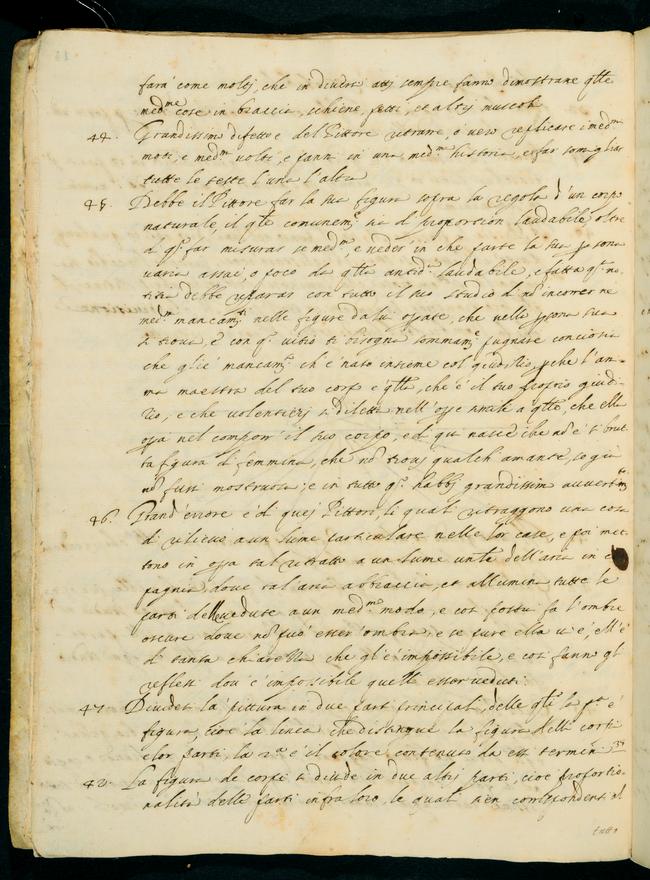 farà come molti, che in diversi atti sempre fanno dimostrare q.lle
med.me cose in braccia, schiene, petti, et altri muscoli
44. Grandissimo difetto è del Pittore ritrarre, o vero replicare i med.mi
moti, e med.mi volti, e panni in una med.ma historia, e far somigliar
tutte le teste l'una l'altra
45. Debbe il Pittore far la sua figura sopra la regola d'un corpo
naturale, il q.le comunem.te sia di proportion laudabile, oltre
di q.o far misurar se med.mo, e veder in che parte la sua p.sona
varia assai, o poco da q.lla antid.a laudabile, e fatta q.a no-
titia debbe riparar con tutto il suo studio di nō incorrer ne
med.mi mancam.ti nelle figure da lui op.ate, che nella p.sona sua
si trova, e con q.o vitio ti bisogna sommam.te pugnare conciosia
che gli è mancam.to ch'è nato insieme col giuditio, p.che l'ani-
ma maestra del tuo corpo è q.lla, che è il tuo proprio giudi-
tio, e che volentieri si diletta nell'opre simili a q.lle, che ella
oprò nel compor il tuo corpo, e di qui nasce che nō è sì brut-
ta figura di femmina, che nō trovi qualch'amante, se già
nō fussi mostruosa; e in tutto q.o habbj grandissimo avvertim.to
46. Grand'errore è di quej Pittori, li quali ritraggono una cosa
di rilievo a un lume particulare nelle lor case, e poi met-
tono in op.a tal ritratto a un lume univ.le dell'aria in cā-
pagnia, dove tal aria abbraccia, et allumina tutte le
parti delle vedute a un med.mo modo, e così costui fa l'ombre
oscure dove nō può esser ombra, e se pure ella vi è, ell'è
di tanta chiarezza che gl'è impossibile, e così fanno gl
reflessi dov'è impossibile quelli esser veduti.
47. Dividesi la pittura in due parti principali, delle q.li la p.a è
figura, cioè la linea che distingue la figura delli corpi
e lor parti, la 2.a è il colore contenuto da essi termini
48. La figura de corpi si divide in due altri parti, cioè proportio-
nalità delle parti infra loro, le quali sien correspondenti al
tutto